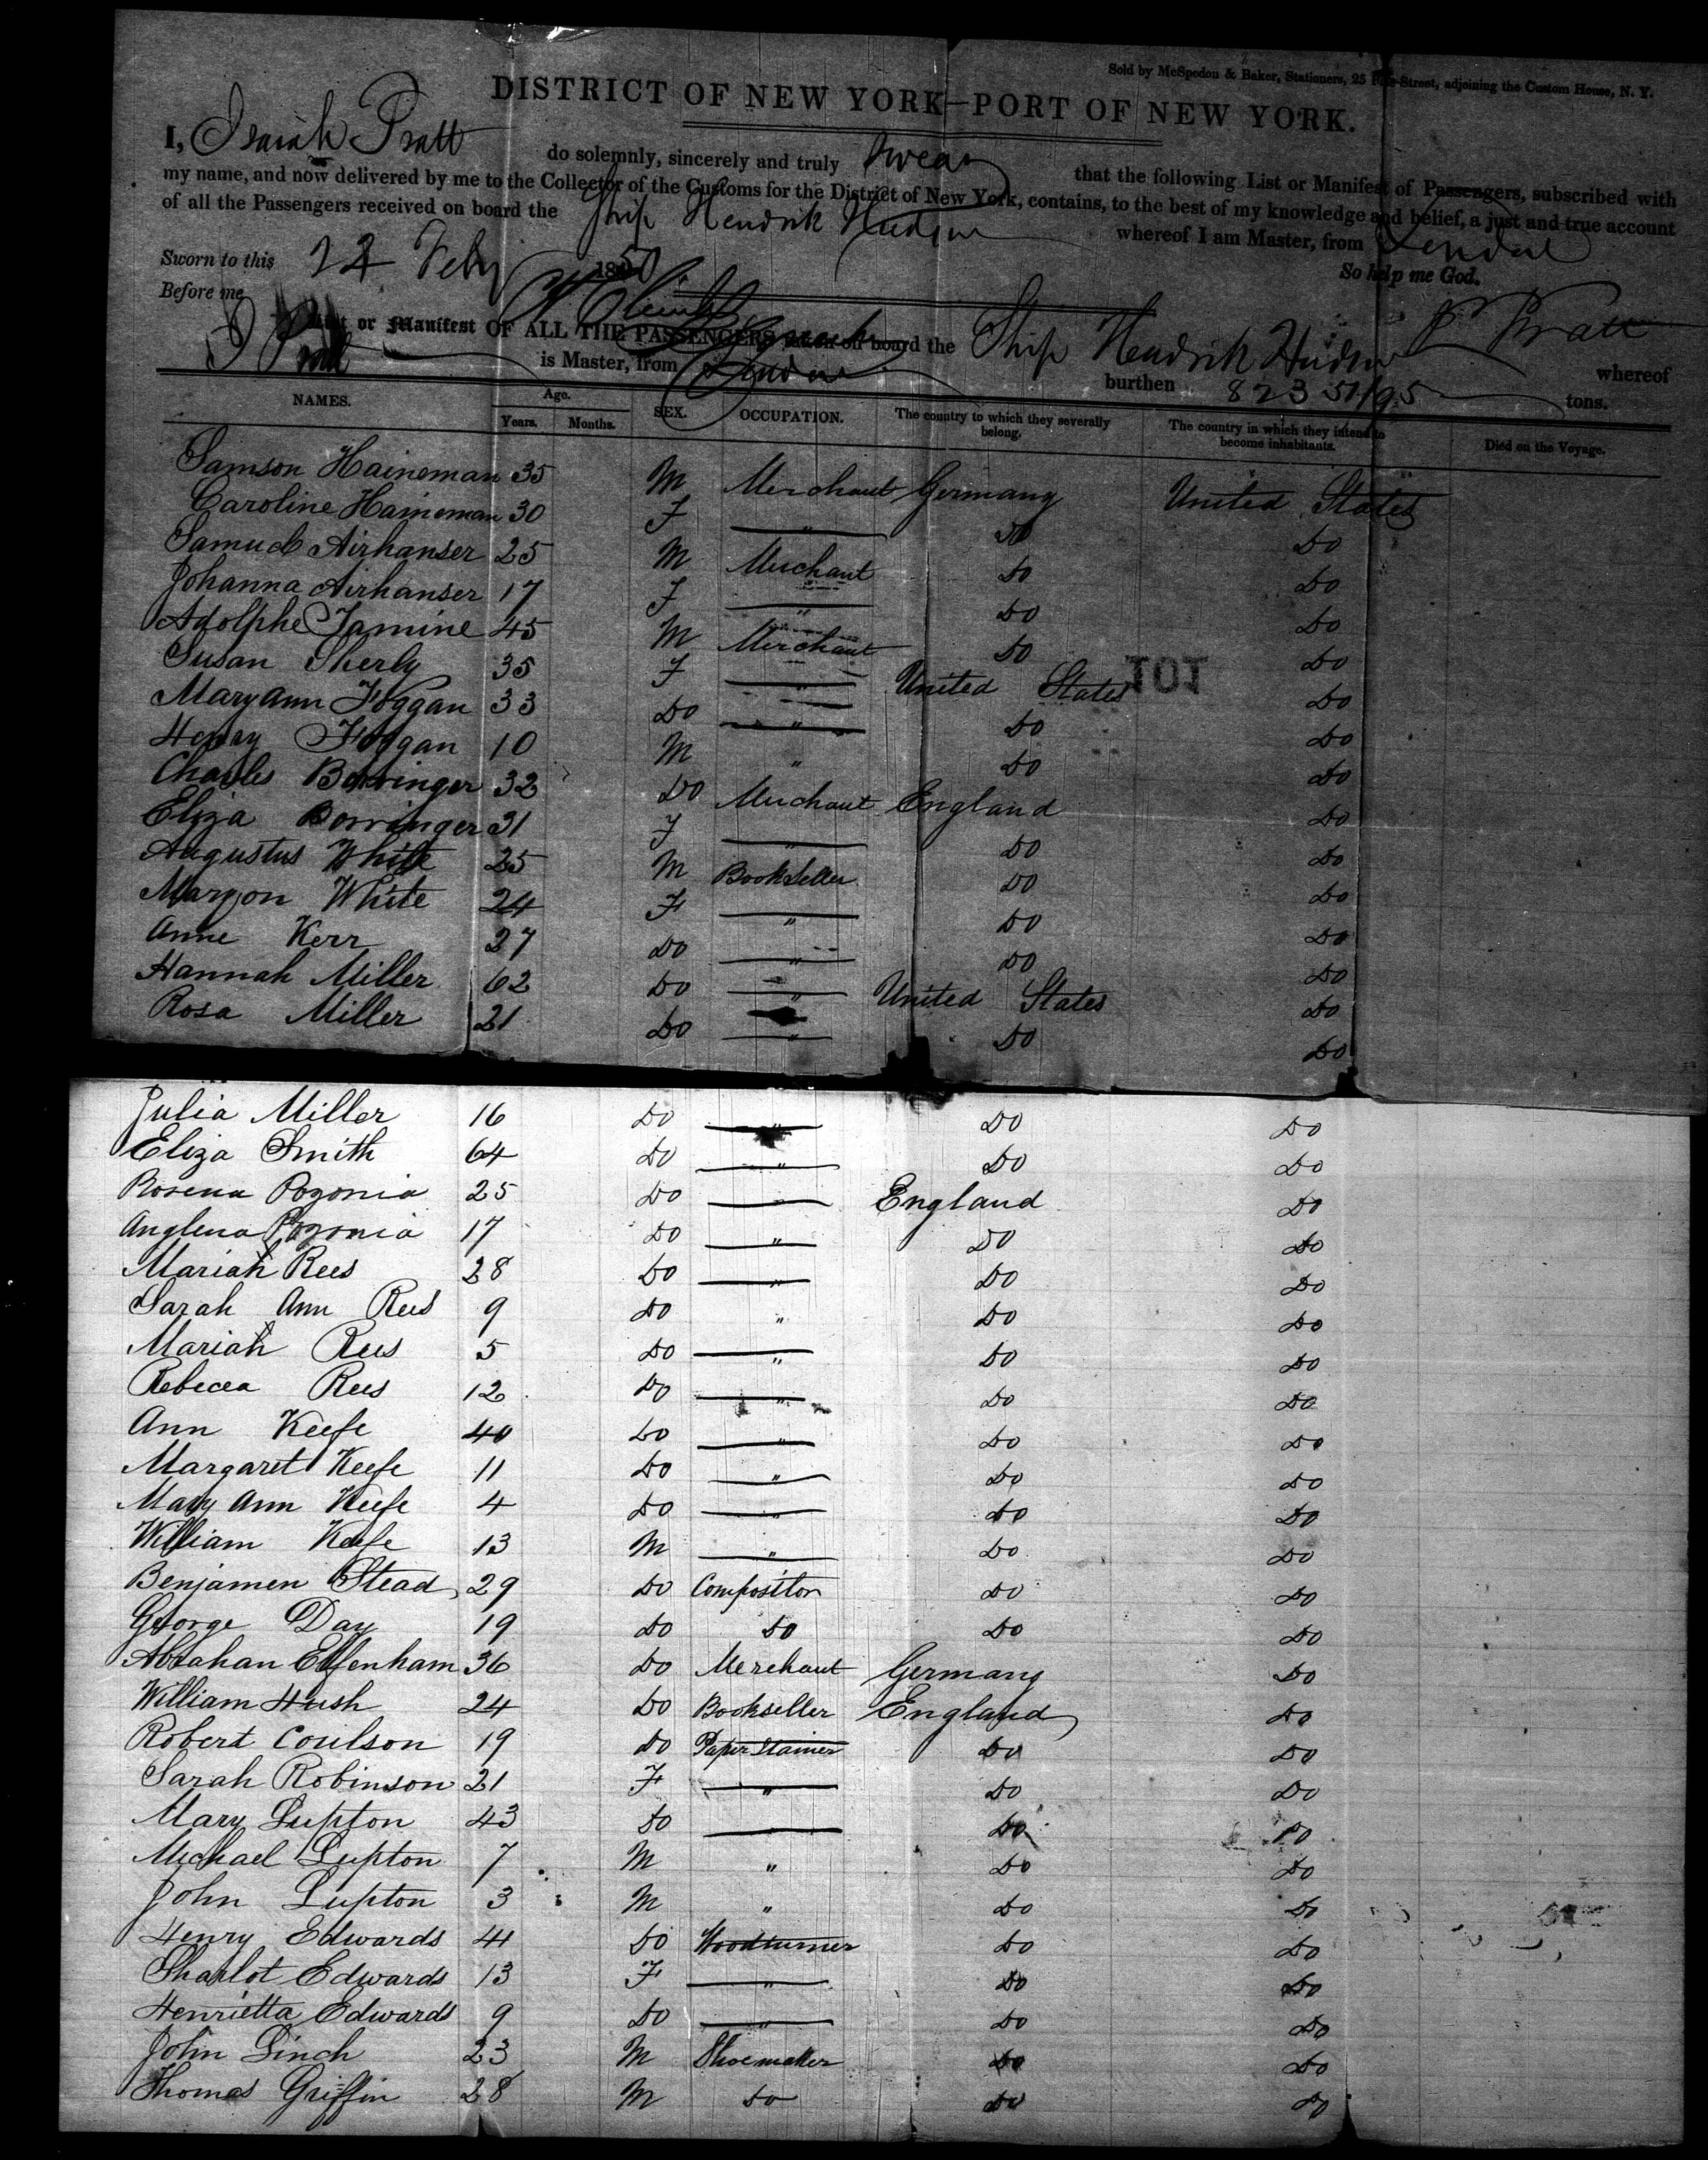 Sold by McSpedon & Baker, Stationers, 25 Pine-Street, adjoining the Custom House, N. Y.
DISTRICT OF NEW YORK—PORT OF NEW YORK.
I, Isaiah Pratt do solemnly, sincerely and truly swear that the following List or Manifest of Passengers, subscribed with
my name, and now delivered by me to the Collector of the Customs for the District of New York, contains, to the best of my knowledge and belief, a just and true account
of all the Passengers received on board the Ship Hendrik Hudson whereof I am Master, from London
Sworn to this 22 Feby 1850 So help me God.
Before me
List or Manifest OF ALL THE PASSENGERS taken on board the Ship Hendrik Hudson whereof
I Pratt is Master, from London burthen 823 51/95 tons.
I Pratt
NAMES. Age. Years. Months. SEX. OCCUPATION. The country to which they severally belong. The country in which they intend to become inhabitants. Died on the Voyage.
Samson Haineman 35 M Merchant Germany United States
Caroline Haineman 30 F " Do Do
Samuel Airhanser 25 M Merchant Do Do
Johanna Airhanser 17 F " Do Do
Adolphe Jamine 45 M Merchant Do Do
Susan Sherly 35 F " United States Do
101
Mary Ann Foggan 33 Do " Do Do
Henry Foggan 10 M " Do Do
Charles Borringer 32 Do Merchant England Do
Eliza Borringer 31 F " Do Do
Augustus White 25 M Bookseller Do Do
Maryon White 24 F " Do Do
Anne Kerr 27 Do " Do Do
Hannah Miller 62 Do " United States Do
Rosa Miller 21 Do " Do Do
Julia Miller 16 Do " Do Do
Eliza Smith 64 Do " Do Do
Rosena Pogonia 25 Do " England Do
Anglena Pogonia 17 Do " Do Do
Mariah Rees 28 Do " Do Do
Sarah Ann Rees 9 Do " Do Do
Mariah Rees 5 Do " Do Do
Rebecea Rees 12 Do " Do Do
Ann Keefe 40 Do " Do Do
Margaret Keefe 11 Do " Do Do
Mary Ann Keefe 4 Do " Do Do
William Keefe 13 M " Do Do
Benjamen Stead 29 Do Compositor Do Do
George Day 19 Do Do Do Do
Abrahan Elfenham 36 Do Merchant Germany Do
William Hush 24 Do Bookseller England Do
Robert Coulson 19 Do Paper Stainer Do Do
Sarah Robinson 21 F " Do Do
Mary Lupton 43 Do Do Do
Michael Lupton 7 M " Do Do
John Lupton 3 M " Do Do
Henry Edwards 41 Do Woodturner Do Do
Sharlot Edwards 13 F " Do Do
Henrietta Edwards 9 Do " Do Do
John Linch 23 M Shoemaker Do Do
Thomas Griffin 28 M Do Do Do